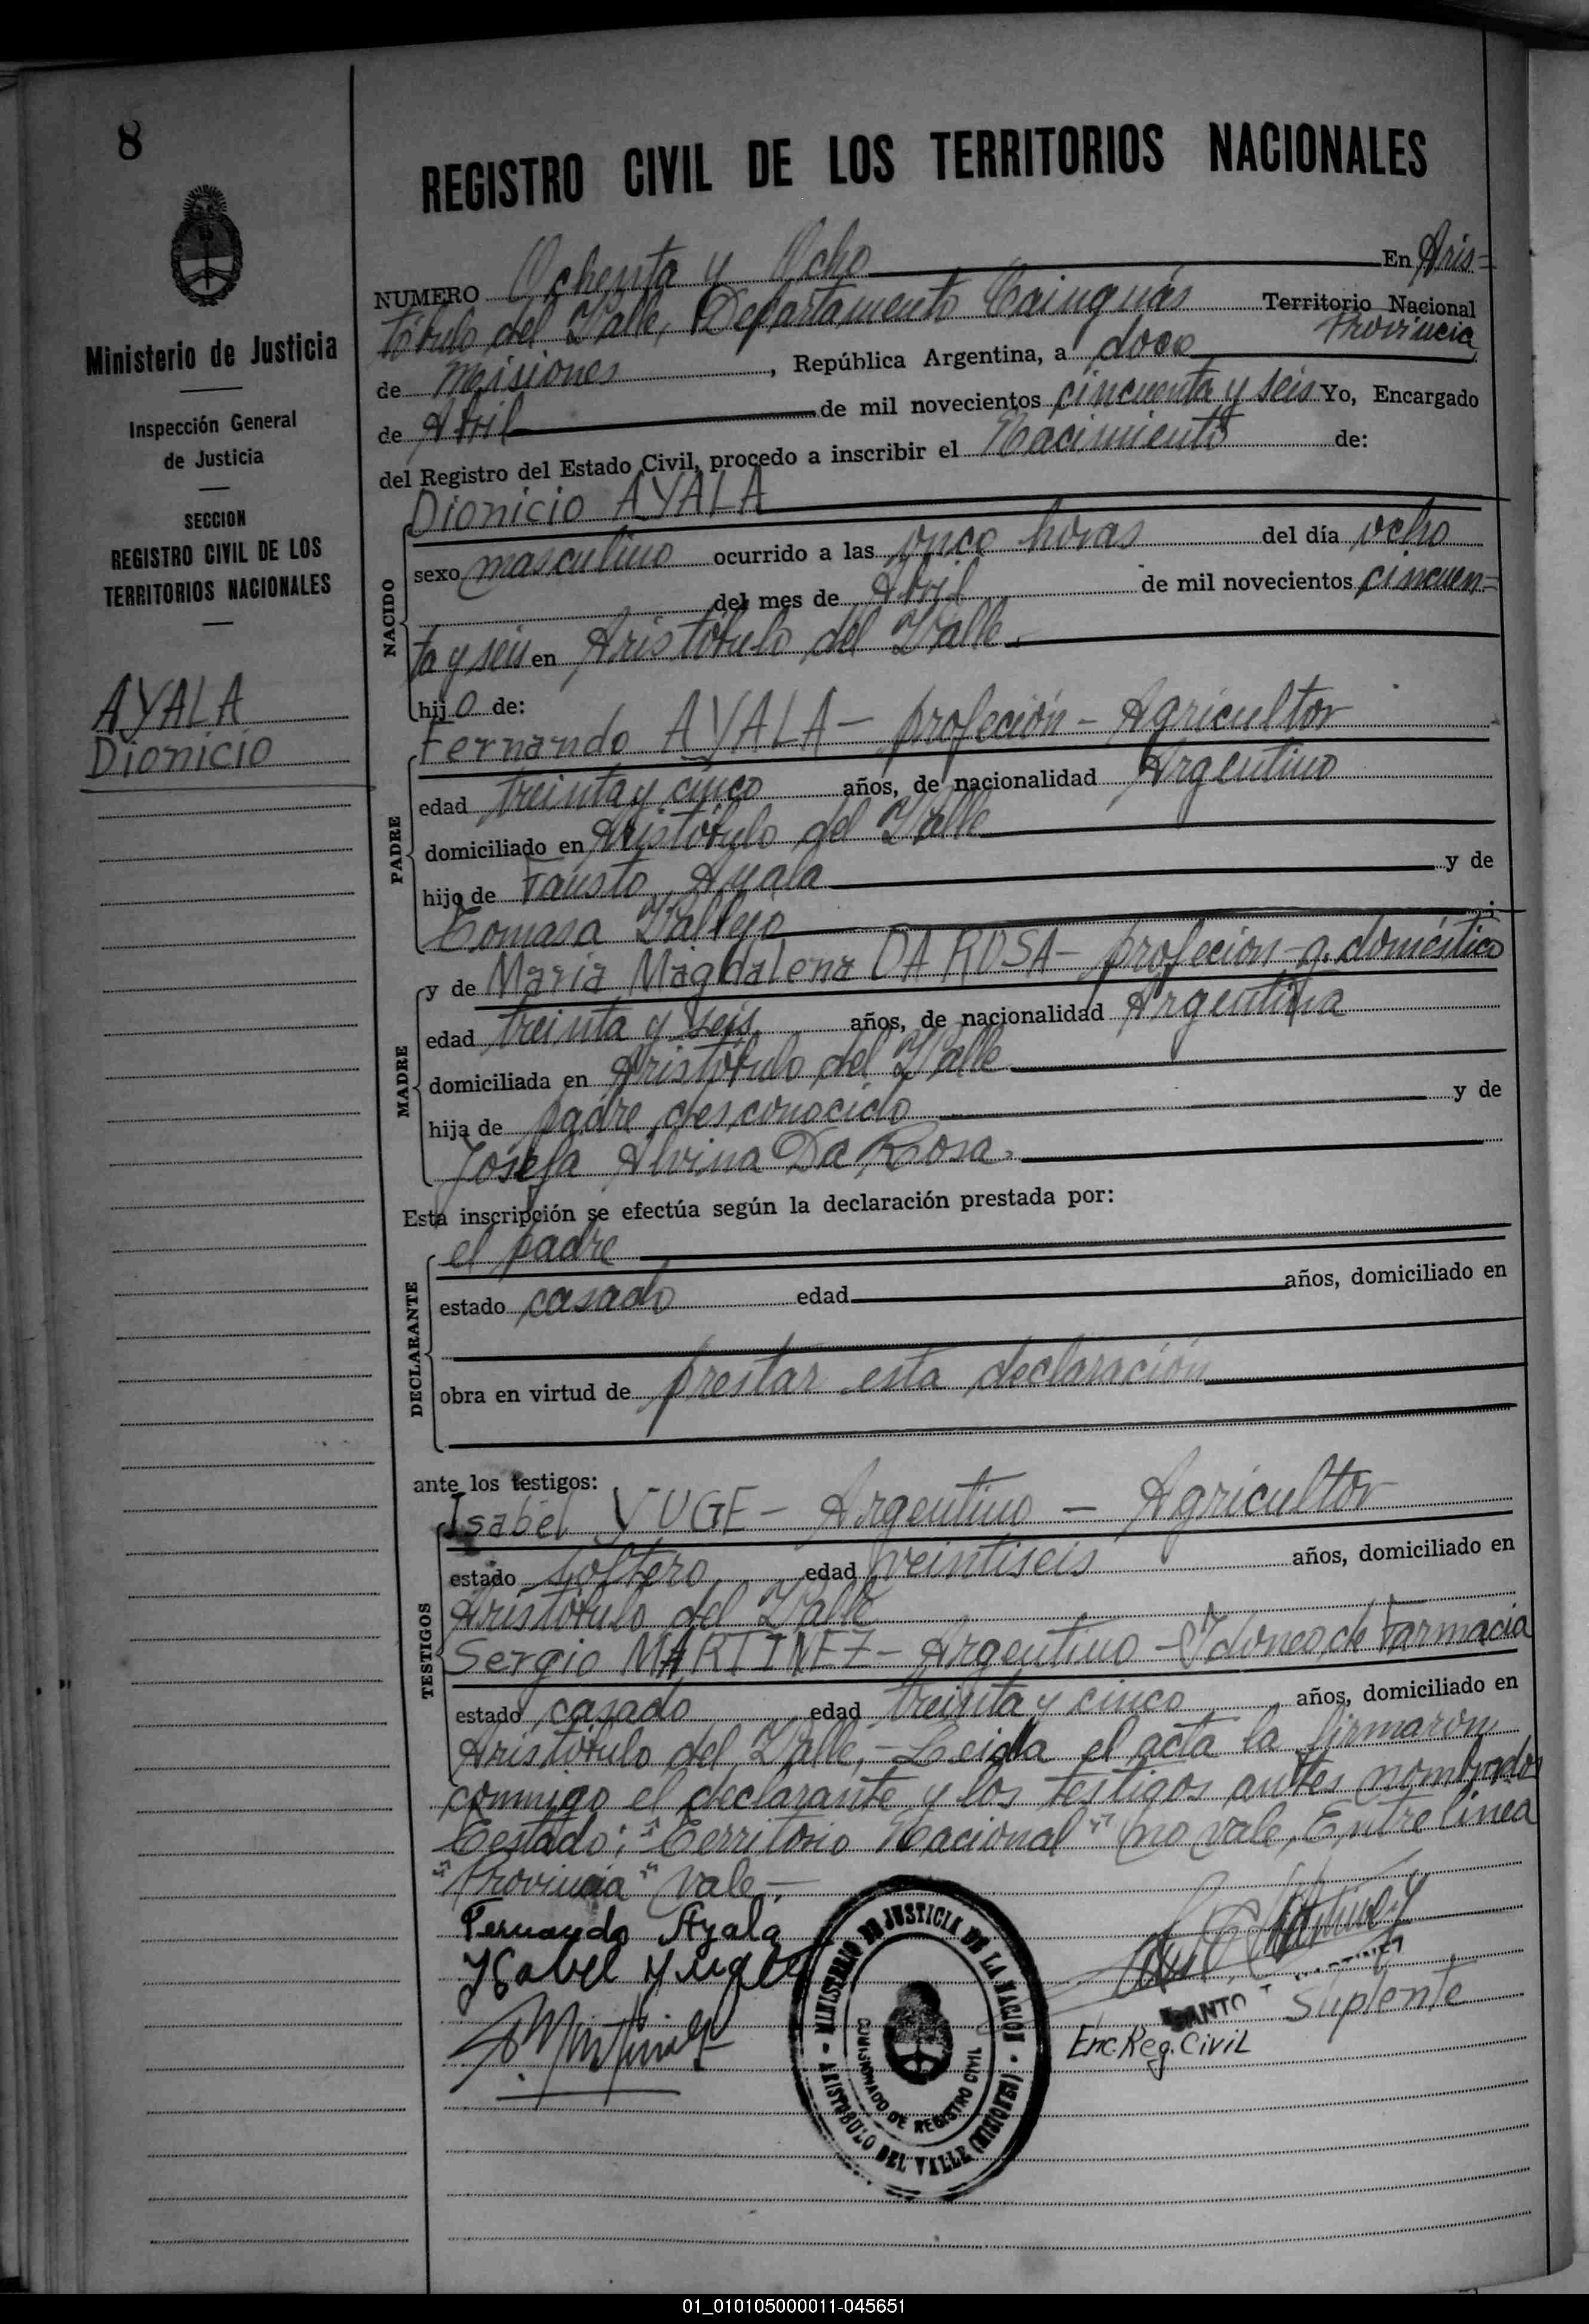 8
Ministerio de Justicia
Inspección General
de Justicia
SECCION
REGISTRO CIVIL DE LOS
TERRITORIOS NACIONALES
AYALA
Dionicio
REGISTRO CIVIL DE LOS TERRITORIOS NACIONALES
NUMERO Ochenta y Ocho En Aris=
tóbulo del Valle, Departamento Cainguás Territorio Nacional
Provincia
de Misiones, República Argentina, a doce
de Abril de mil novecientos cincuenta y seis Yo, Encargado
del Registro del Estado Civil, procedo a inscribir el Nacimiento de:
NACIDO
Dionicio AYALA
sexo masculino ocurrido a las once horas del día ocho
del mes de Abril de mil novecientos cincuen=
ta y seis en Aristóbulo del Valle.
hijo de:
PADRE
Fernando AYALA - profeción - Agricultor
edad treinta y cinco años, de nacionalidad Argentino
domiciliado en Aristóbulo del Valle
hijo de Fausto Ayala y de
Tomasa Vallejo ;
MADRE
y de Maria Magdalena DA ROSA - profecion - q. doméstico
edad treinta y seis años, de nacionalidad Argentina
domiciliada en Aristóbulo del Valle
hija de padre desconocido y de
Josefa Alvina Da Rosa.
Esta inscripción se efectúa según la declaración prestada por:
DECLARANTE
el padre
estado casado edad años, domiciliado en
obra en virtud de prestar esta declaración
ante los testigos:
TESTIGOS
Isabel YUGE - Argentino - Agricultor
estado soltero edad veintiseis años, domiciliado en
Aristóbulo del Valle
Sergio MARTINEZ - Argentino - Idoneo de Farmacia
estado casado edad treinta y cinco años, domiciliado en
Aristóbulo del Valle, - Leida el acta la firmaron
conmigo el declarante y los testigos antes nombrados
Testado: "Territorio Nacional" no vale, Entre linea
"Provincia" vale.-
Fernando Ayala
Isabel Yuge
S. Martinez
MINISTERIO DE JUSTICIA DE LA NACION
COMISIONADO DE REGISTRO CIVIL
ARISTOBULO DEL VALLE (MISIONES)
Suplente
Enc. Reg. Civil
01_010105000011-045651